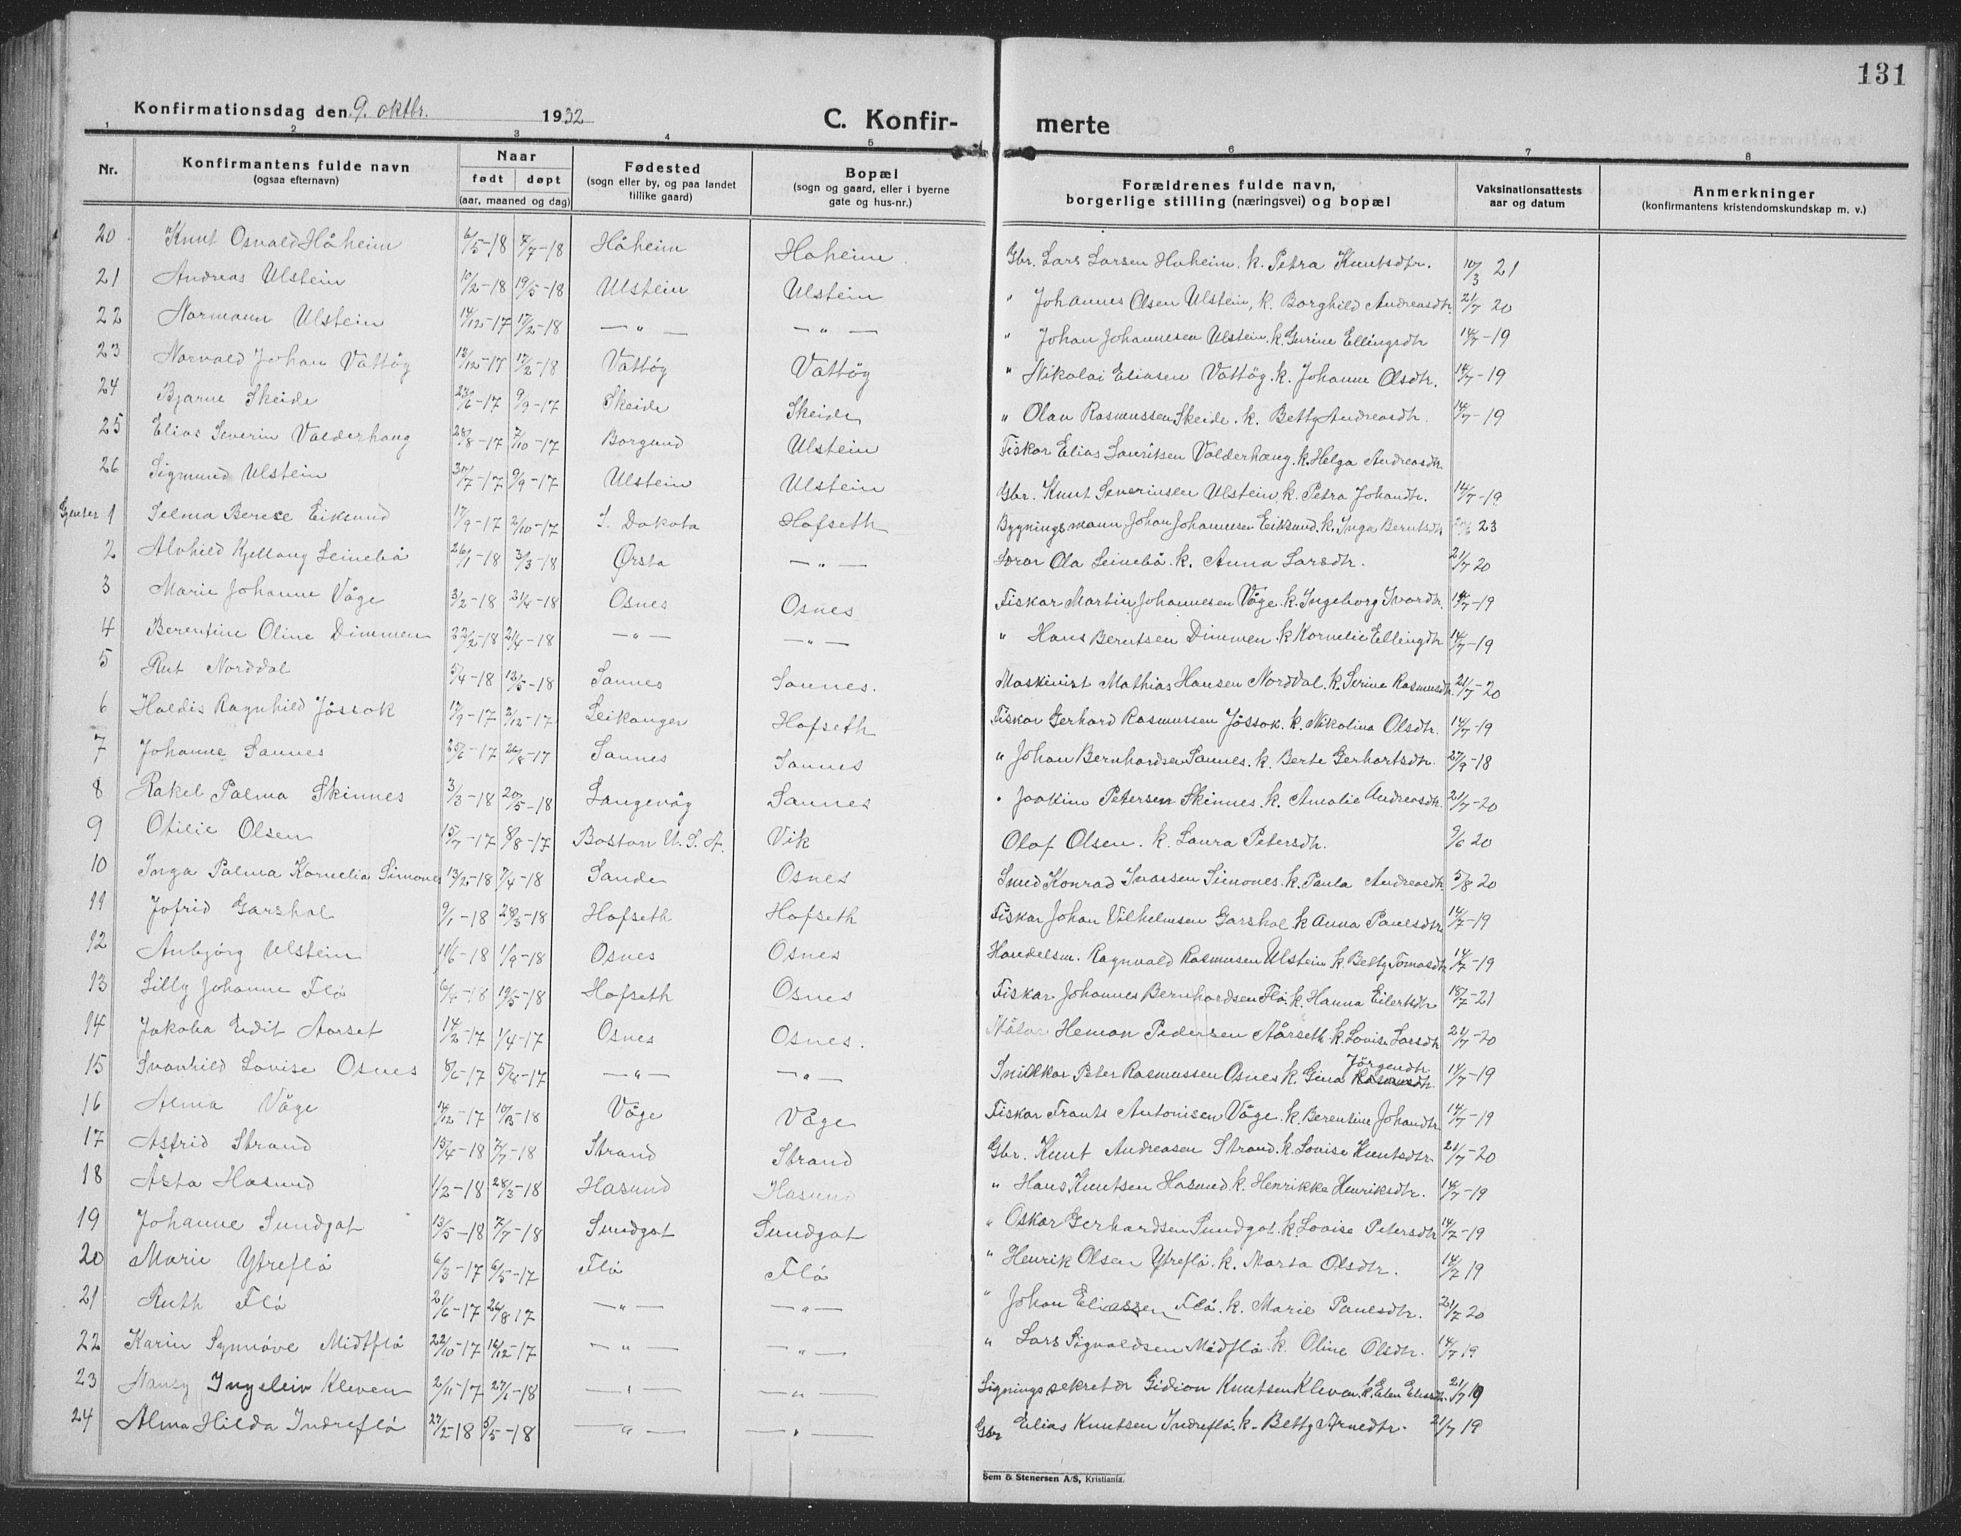 131
Konfirmationsdag den 9. oktbr. 1932
C. Konfir- merte
1 2 3 4 5 6 7 8
Nr. Konfirmantens fulde navn (ogsaa efternavn) Naar født døpt (aar, maaned og dag) Fødested (sogn eller by, og paa landet tillike gaard) Bopæl (sogn og gaard, eller i byerne gate og hus-nr.) Forældrenes fulde navn, borgerlige stilling (næringsvei) og bopæl Vaksinationsattests aar og datum Anmerkninger (konfirmantens kristendomskundskap m. v.)
20 Knut Osvald Håheim 6/5-18 7/7-18 Håheim Haheim Gbr. Lars Larsen Haheim. k. Petra Knutsdtr. 10/3 21
21 Andreas Ulstein 10/2-18 19/5-18 Ulstein Ulstein " Johannes Olsen Ulstein, k. Borghild Andreasdtr. 21/7 20
22 Normann Ulstein 14/12-17 17/2-18 — " — — " — " Johan Johannesen Ulstein. k. Gurine Ellingsdtr 14/7-19
23 Norvald Johan Vattöy 12/12-17 17/2-18 Vattöy Vattöy " Nikolai Eliasen Vattöy. k. Johanne Olsdtr. 14/7-19
24 Bjarne Skeide 23/6-17 9/9-17 Skeide Skeide " Olan Rasmussen Skeide. k. Betty Andreasdtr. 14/7-19
25 Elias Severin Valderhaug 28/8-17 7/10-17 Borgund Ulstein Fiskar Elias Lauritsen Valderhaug. k. Helga Andreasdtr.
26 Sigmund Ulstein 30/7-17 9/9-17 Ulstein Ulstein Gbr. Knut Severinsen Ulstein k. Petra Johandtr. 14/7-19
Gjenter 1 Selma Berece Eiksund 17/9-17 2/10-17 S. Dakota Hofseth Bygningsmann Johan Johannesen Eiksund. k. Inga Berntsdtr. 23
2 Alvhild Kjellaug Leinebö 26/1-18 3/3-18 Ørsta — " — Lærar Ola Leinebö. k. Anna Larsdtr. 21/7 20
3 Marie Johanne Våge 3/2-18 21/4-18 Osnes Osnes Fiskar Martin Johannesen Våge k. Ingeborg Ivardtr. 14/7-19
4 Berentine Oline Dimmen 22/2-18 21/4-18 — " — — " — " Hans Berntsen Dimmen. k. Kornelie Ellingdtr 14/7-19
5 Rut Norddal 5/4-18 12/5-18 Saunes Saunes. Maskinist Mathias Hansen Norddal. k. Serine Rasmusdtr. 21/7-20
6 Haldis Ragnhild Jøssok 12/9-17 2/12-17 Leikanger Hofseth Fiskar Gerhard Rasmussen Jøssok. k. Nikolina Olsdtr. 14/7-19
7 Johanne Saunes 25/6-17 26/8-17 Saunes Saunes " Johan Bernhardsen Saunes. k. Berte Gerhartsdtr. 27/9-18
8 Rakel Palma Skinnes 3/3-18 20/5-18 Langevåg Saunes " Joakim Petersen Skinnes. k. Amalie Andreasdtr. 21/7-20
9 Otilie Olsen 15/7-17 8/8-17 Boston U.S.A. Vik Olaf Olsen. k. Laura Petersdtr. 9/6 20
10 Inga Palma Kornelia Simones 13/2-18 7/4-18 Sande Osnes Smed Konrad Ivarsen Simones. k. Paula Andreasdtr 5/8 20
11 Jofrid Garshol 9/1-18 28/3-18 Hofseth Hofseth Fiskar Johan Vilhelmsen Garshol k Anna Paulsdtr 14/7-19
12 Anbjørg Ulstein 11/6-18 1/9-18 Osnes Osnes Handelsm. Ragnvald Rasmusen Ulstein k. Betty Tomasdtr 14/7-19
13 Lilly Johanne Flö 6/4-18 19/5-18 Hofseth Osnes Fiskar Johannes Bernhardsen Flö. k. Hanna Eilertsdtr 18/7-21
14 Jakoba Edit Aarset 14/2-17 1/4-17 Osnes Osnes. Målar Heman Pedersen Aårseth. k. Lovise Larsdtr 21/7-20
15 Svanhild Lovise Osnes 8/6-17 5/8-17 — " — — " — Snikkar Peter Rasmussen Osnes k. Gina Rasmusdtr. Jörgendtr. 14/7-19
16 Alma Våge 14/12-17 10/3-18 Våge Våge Fiskar Frants Antonisen Våge. k. Berentine Johandtr 14/7-19
17 Astrid Strand 15/4-18 7/7-18 Strand Strand Gbr. Knut Andreasen Strand. k. Lovise Knutsdtr. 21/7-20
18 Åsta Hasund 1/2-18 28/3-18 Hasund Hasund " Hans Knutsen Hasund k. Henrikke Henriksdtr. 14/7-19
19 Johanne Sundgot 13/5-18 7/7-18 Sundgot Sundgot " Oskar Gerhardsen Sundgot. k. Lovise Petersdtr 14/7-19
20 Marie Ytreflö 6/3-17 6/5-17 Flö Flö " Henrik Olsen Ytreflö. k. Marta Olsdtr. 14/7 19
21 Ruth Flö 21/6-17 26/8 17 — " — — " — " Johan Eliassen Flö. k. Marie Paulsdtr. 21/7 20
22 Karin Synnöve Midtflö 22/10-17 16/12-17 — " — — " — " Lars Sigvaldsen Midflö. k. Oline Olsdtr. 14/7 19
23 Nansy Ingeleiv Kleven 2/11-17 27/1-18 — " — — " — Ligningssekretær Gidion Knutsen Kleven. k. Elen Eliasdtr. 21/7 19
24 Alma Hilda Indreflö 27/2-18 5/5-18 — " — — " — Gbr Elias Knutsen Indreflö. k. Betty Arnedtr. 21/7 19
Sem & Stenersen A/S, Kristiania.